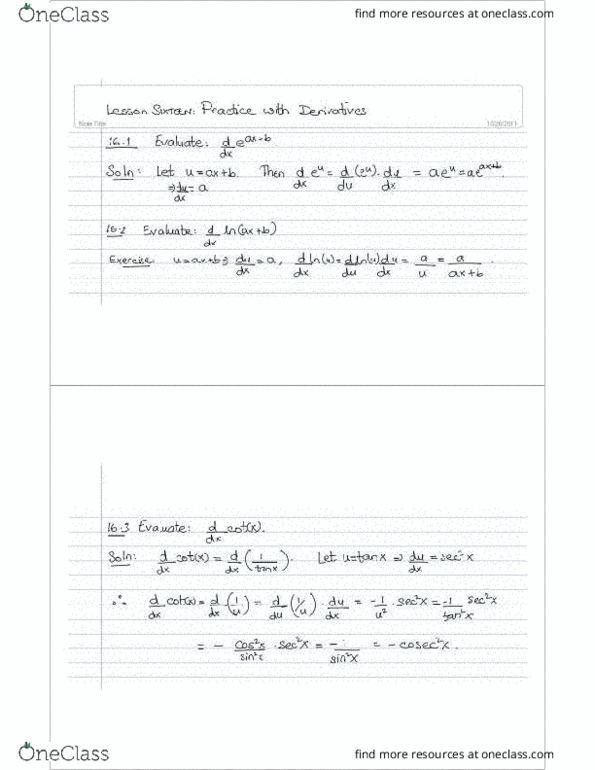 OneClass find more resources at oneclass.com
Lesson Sixteen: Practice with Derivatives
Note Title 10/26/2011
16.1 Evaluate: d/dx e^(ax-b)
Soln: Let u = ax+b. Then d/dx e^u = d/du (e^u) · du/dx = ae^u = ae^(ax+b).
⇒ du/dx = a
16.2 Evaluate: d/dx ln(ax+b)
Exercise: u=ax+b; du/dx = a, d ln(u)/dx = d ln(u)/du du/dx = a/u = a/(ax+b).
16.3 Evaluate: d/dx cot(x).
Soln: d/dx cot(x) = d/dx (1/tanx). Let u=tanx ⇒ du/dx = sec²x
∴ d/dx cot(x) = d/dx (1/u) = d/du (1/u) · du/dx = -1/u² · sec²x = -1/tan²x sec²x
= - cos²x/sin²x · sec²x = -1/sin²x = -cosec²x.
OneClass find more resources at oneclass.com